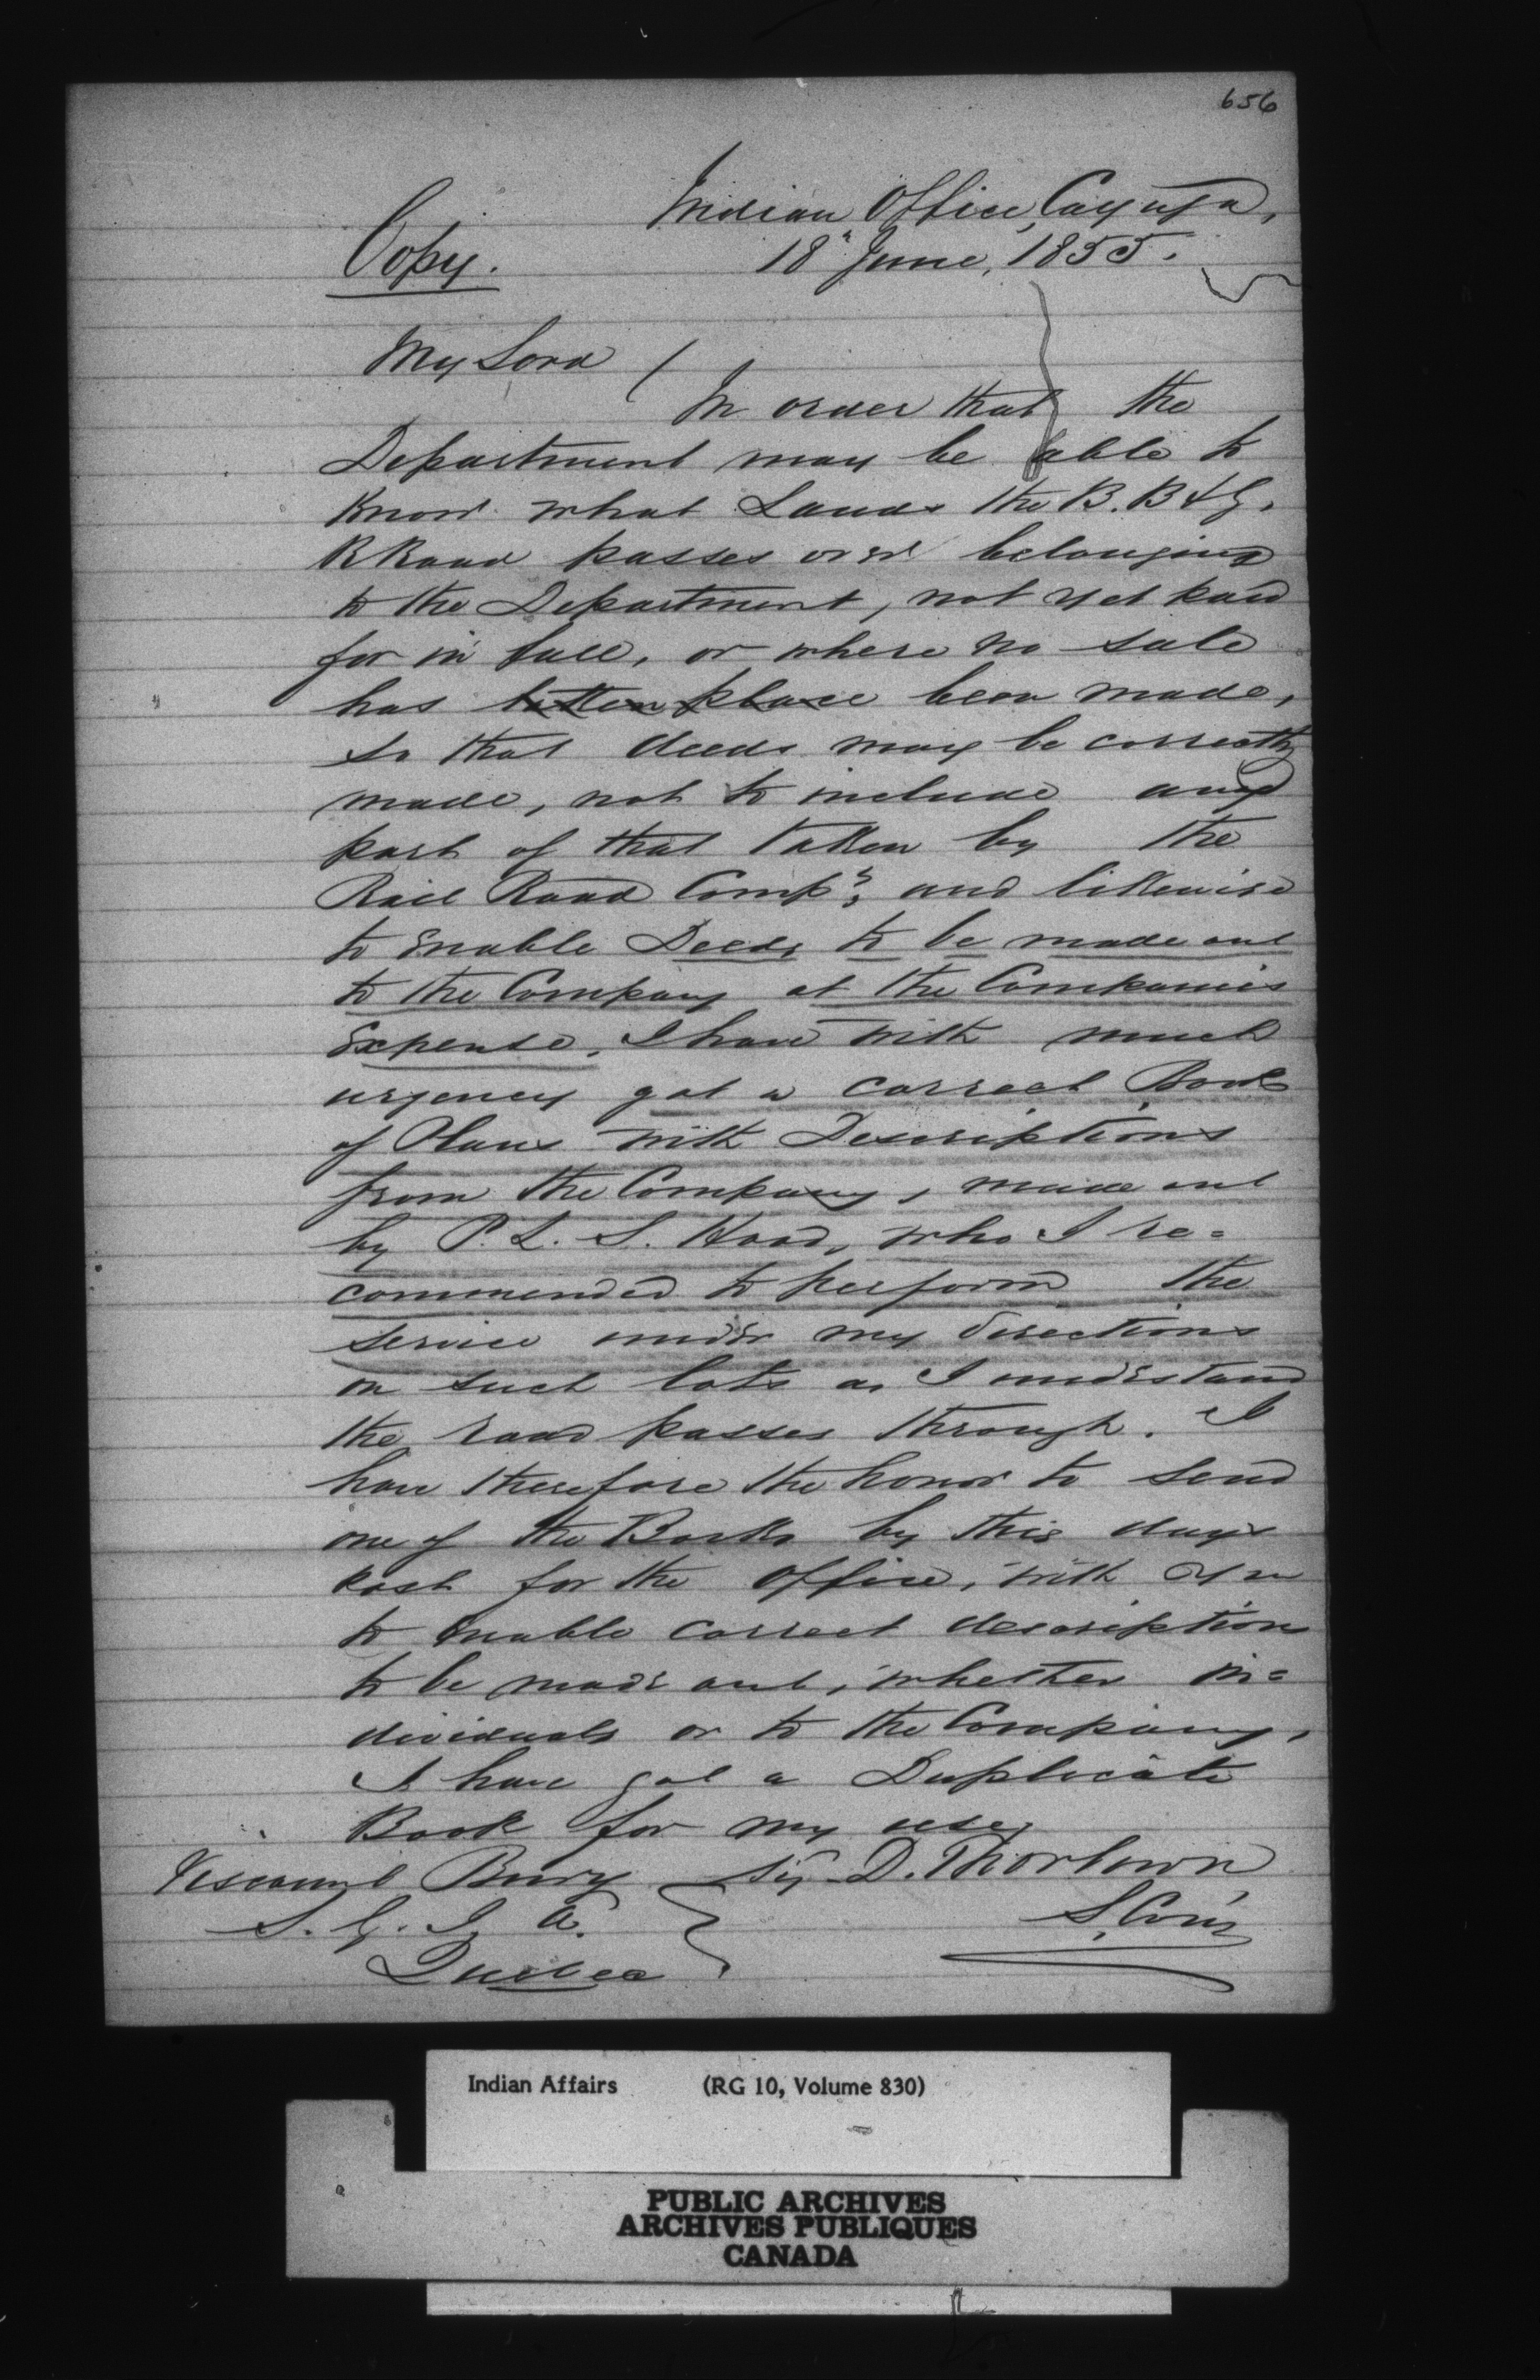 656
Indian Office, Cayuga,
Copy. 18" June, 1855.
My Lord /
In order that the
Department may be able to
Know what Lands the B. B & G.
R Road passes over belonging
to the Department, not yet paid
for in full, or where no sale
has taken place been made,
so that deeds may be correctly
made, not to include any
part of that taken by the
Rail Road Compy, and likewise
to Enable Deeds to be made out
to the Company at the Companies
Expense, I have with much
urgency got a correct Book
of Plans with Descriptions
from the Company, made out
by P. L. S. Hood, who I re=
commended to perform the
service under my directions
on such lots as I understand
the road passes through. I
have therefore the honor to send
one of the Books by this days
post for the Office, with
to enable correct description
to be made out, whether in=
dividuals or to the Company,
I have got a Duplicate
Book for my use,
Viscount Bury Sig D. Thorburn
S. G. I. A. S. Comr
Quebec
Indian Affairs (RG 10, Volume 830)
PUBLIC ARCHIVES
ARCHIVES PUBLIQUES
CANADA